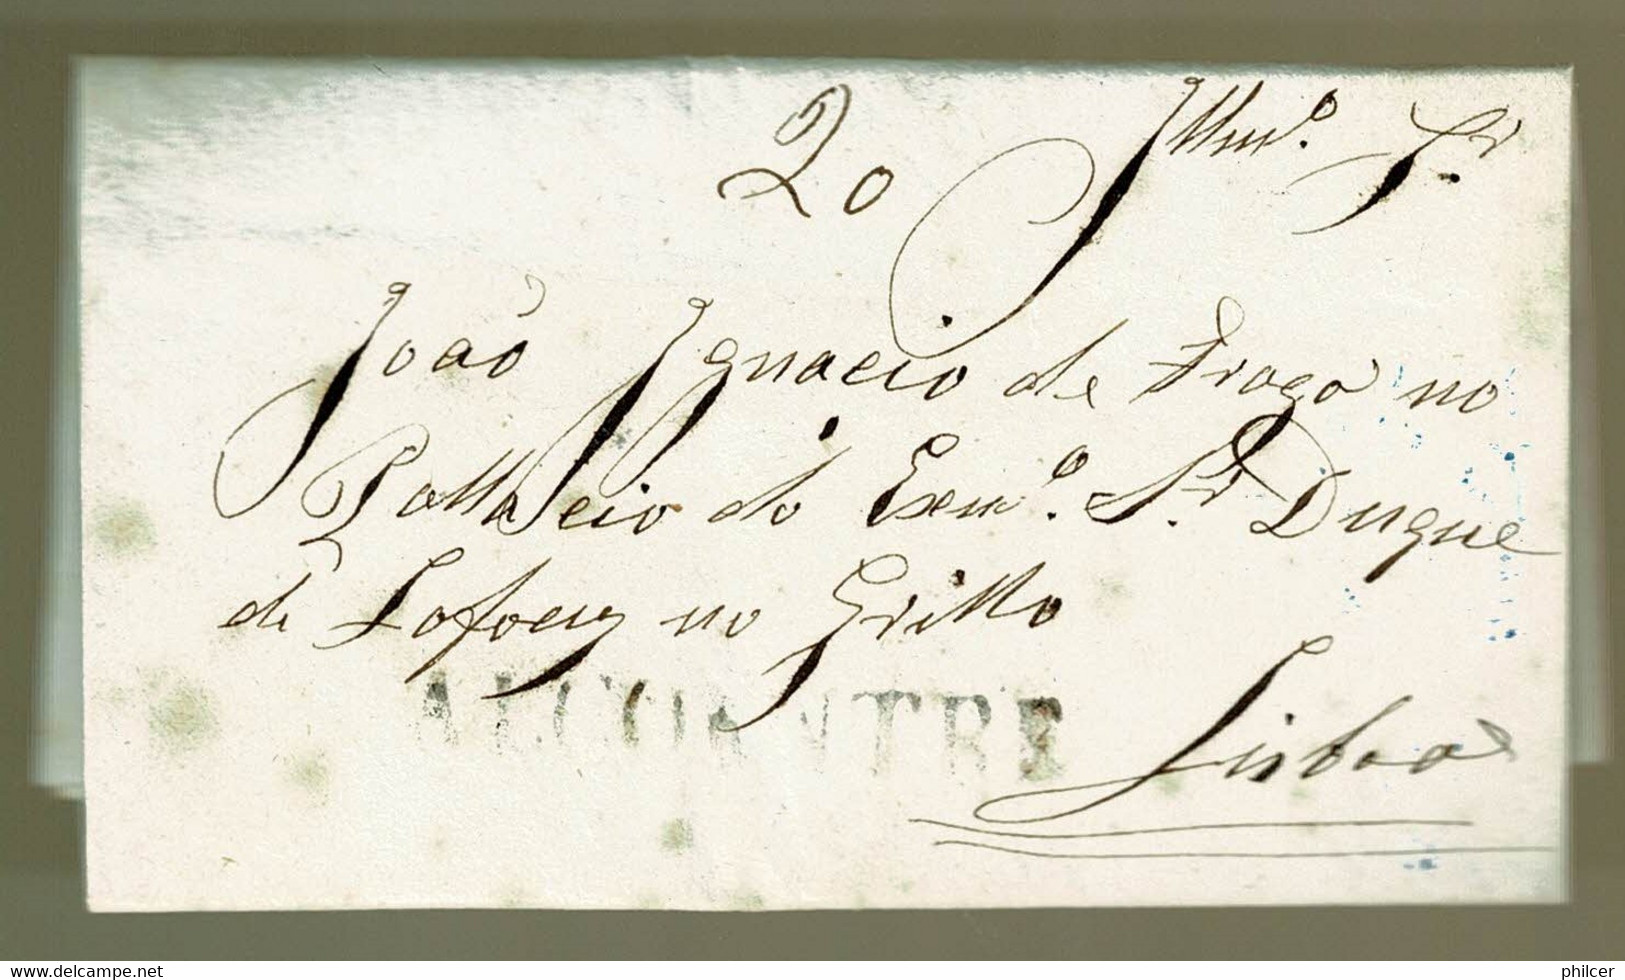 20 Illmo. Sr.
João Ignacio de Fraga no
Pallacio do Exmo. Sr. Duque
de Lafoeis no Grillo
ALCOENTRE
Lisboa
www.delcampe.net
philcer